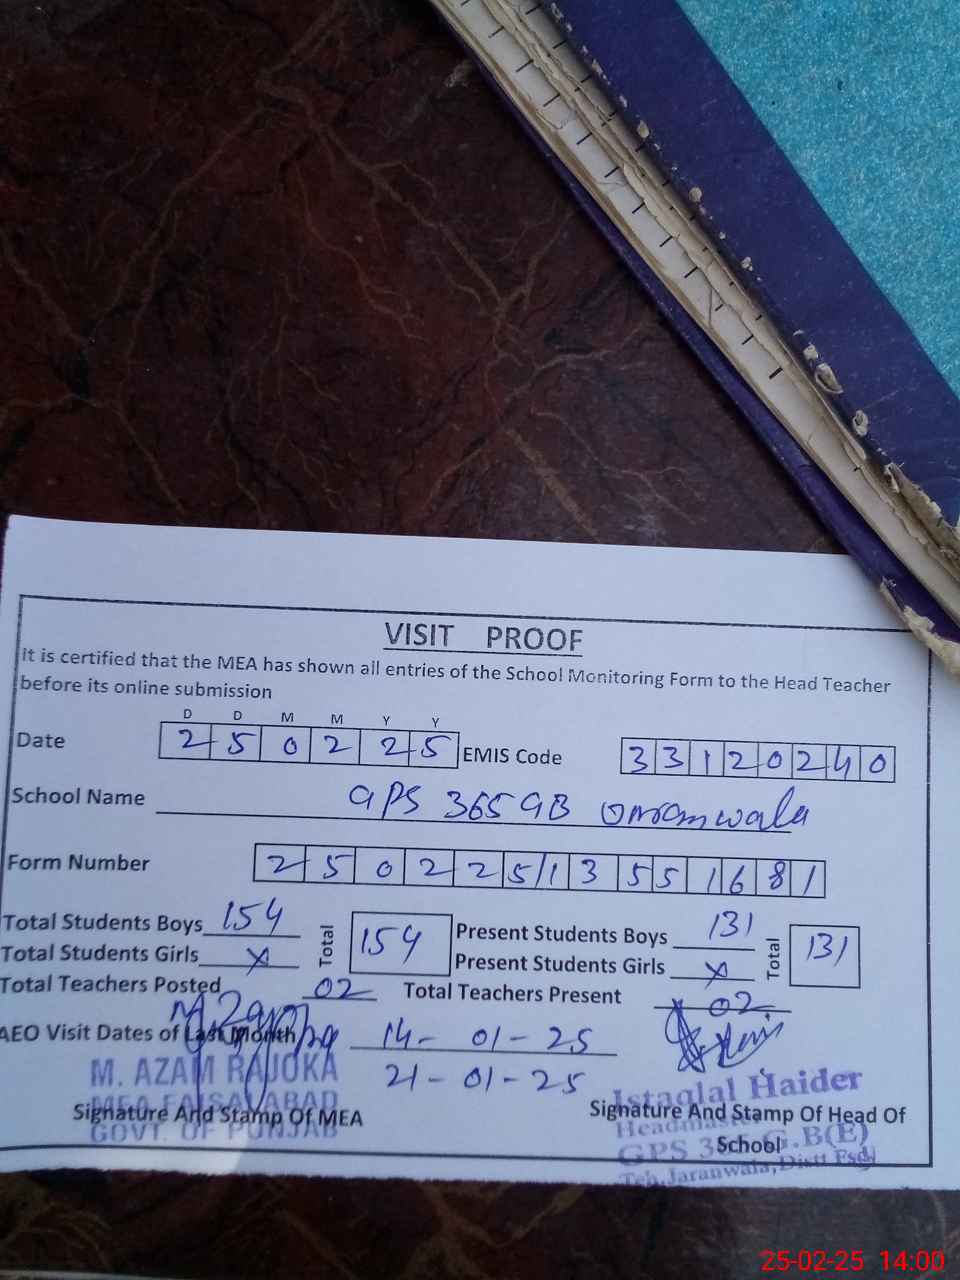 VISIT PROOF
It is certified that the MEA has shown all entries of the School Monitoring Form to the Head Teacher
before its online submission
D D M M Y Y
Date 2 5 0 2 2 5 EMIS Code 3 3 1 2 0 2 4 0
School Name GPS 365 GB Omranwala
Form Number 2 5 0 2 2 5 1 3 5 5 1 6 8 1
Total Students Boys 154 Total 154 Present Students Boys 131 Total 131
Total Students Girls x Present Students Girls x
Total Teachers Posted 02 Total Teachers Present 02
AEO Visit Dates of Last Month 14-01-25
21-01-25
M. AZAM RAJOKA
MEA FAISALABAD
GOVT. OF PUNJAB
Signature And Stamp Of MEA
Istaqlal Haider
Headmaster
GPS 365 G.B(E)
Teh.Jaranwala,Distt Fsd
Signature And Stamp Of Head Of
School
25-02-25 14:00